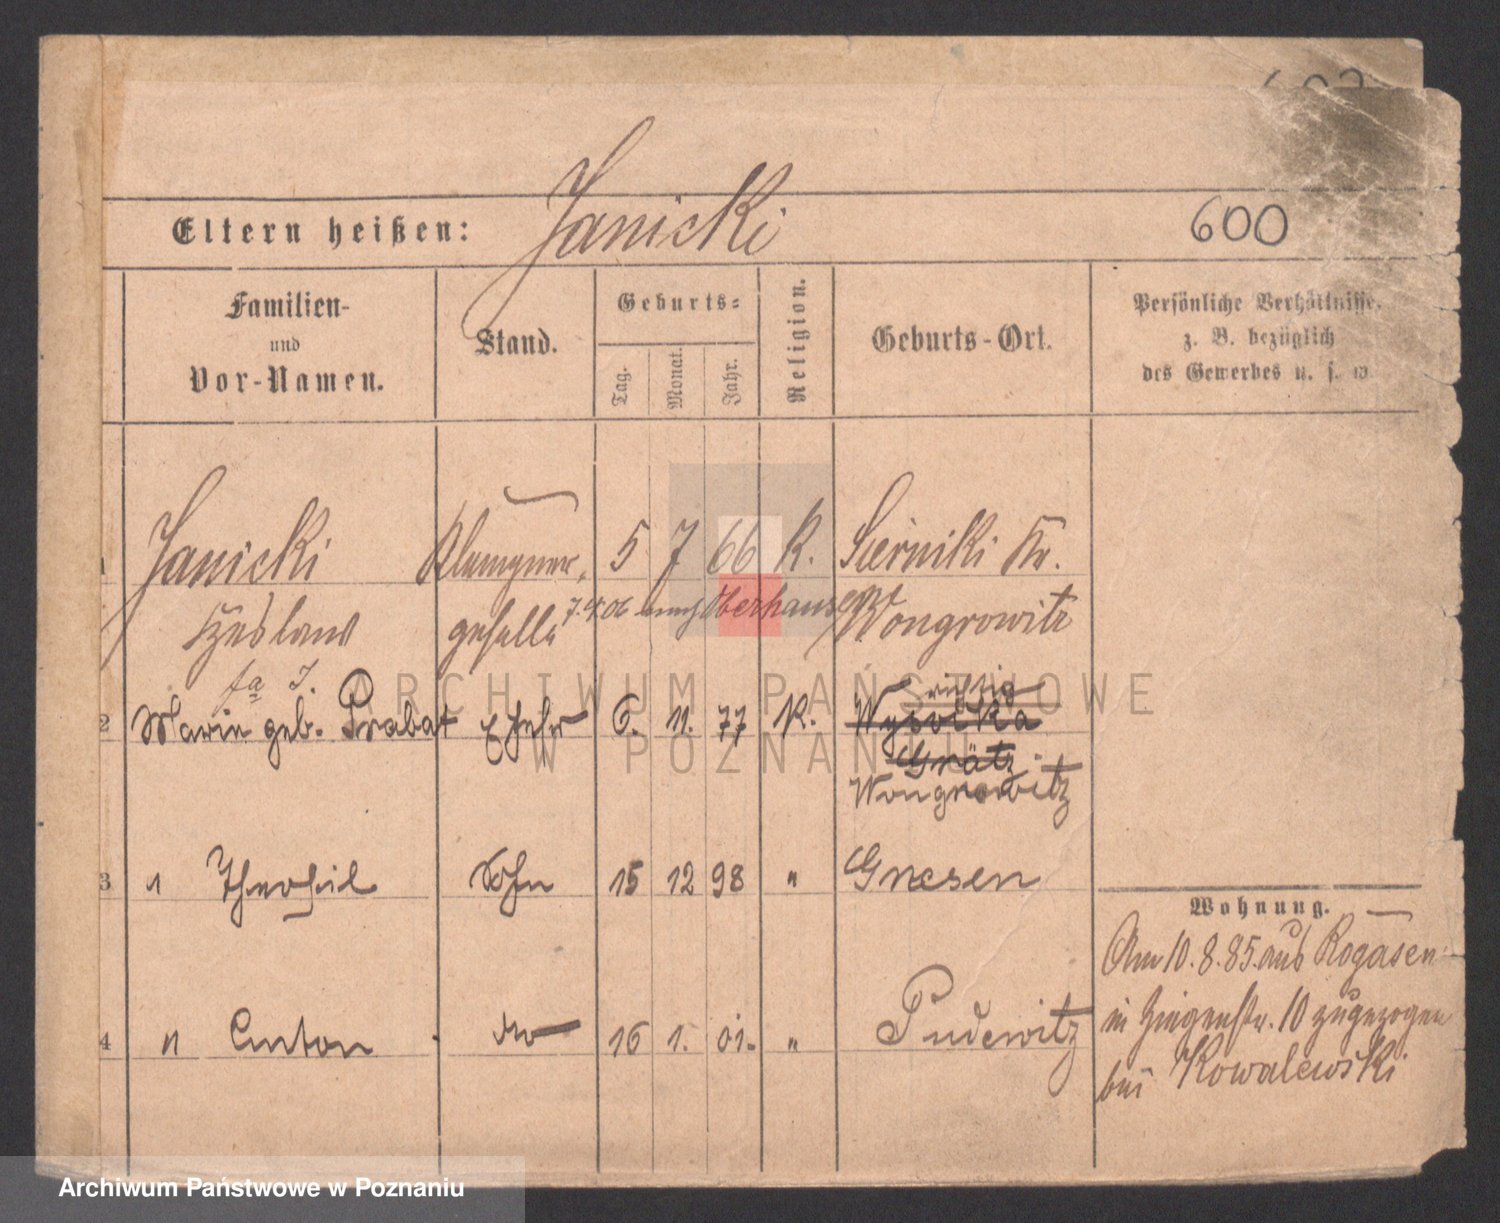 Eltern heißen: Janicki 600
Familien-
und
Vor-Namen.
Stand.
Geburts-
Tag.
Monat.
Jahr.
Religion.
Geburts-Ort.
Persönliche Verhältnisse,
z. B. bezüglich
des Gewerbes u. s. w.
1 Janicki 5 7 66 K. Sierniki Kr.
Czeslaw geselle 7.4.06 nach Oberhausen Wongrowitz
2 Marie geb. Prabat Ehefr 6. 11. 77 K. Wysocka
richtig
Grätz
Wongrowitz
3 " Theophil Sohn 15 12 98 " Gnesen
4 " Anton do 16 1. 01. " Pudewitz
Wohnung.
Am 10.8.85 aus Rogasen
in Ziegenstr. 10 zugezogen
bei Kowalewski
ARCHIWUM PAŃSTWOWE
W POZNANIU
Archiwum Państwowe w Poznaniu